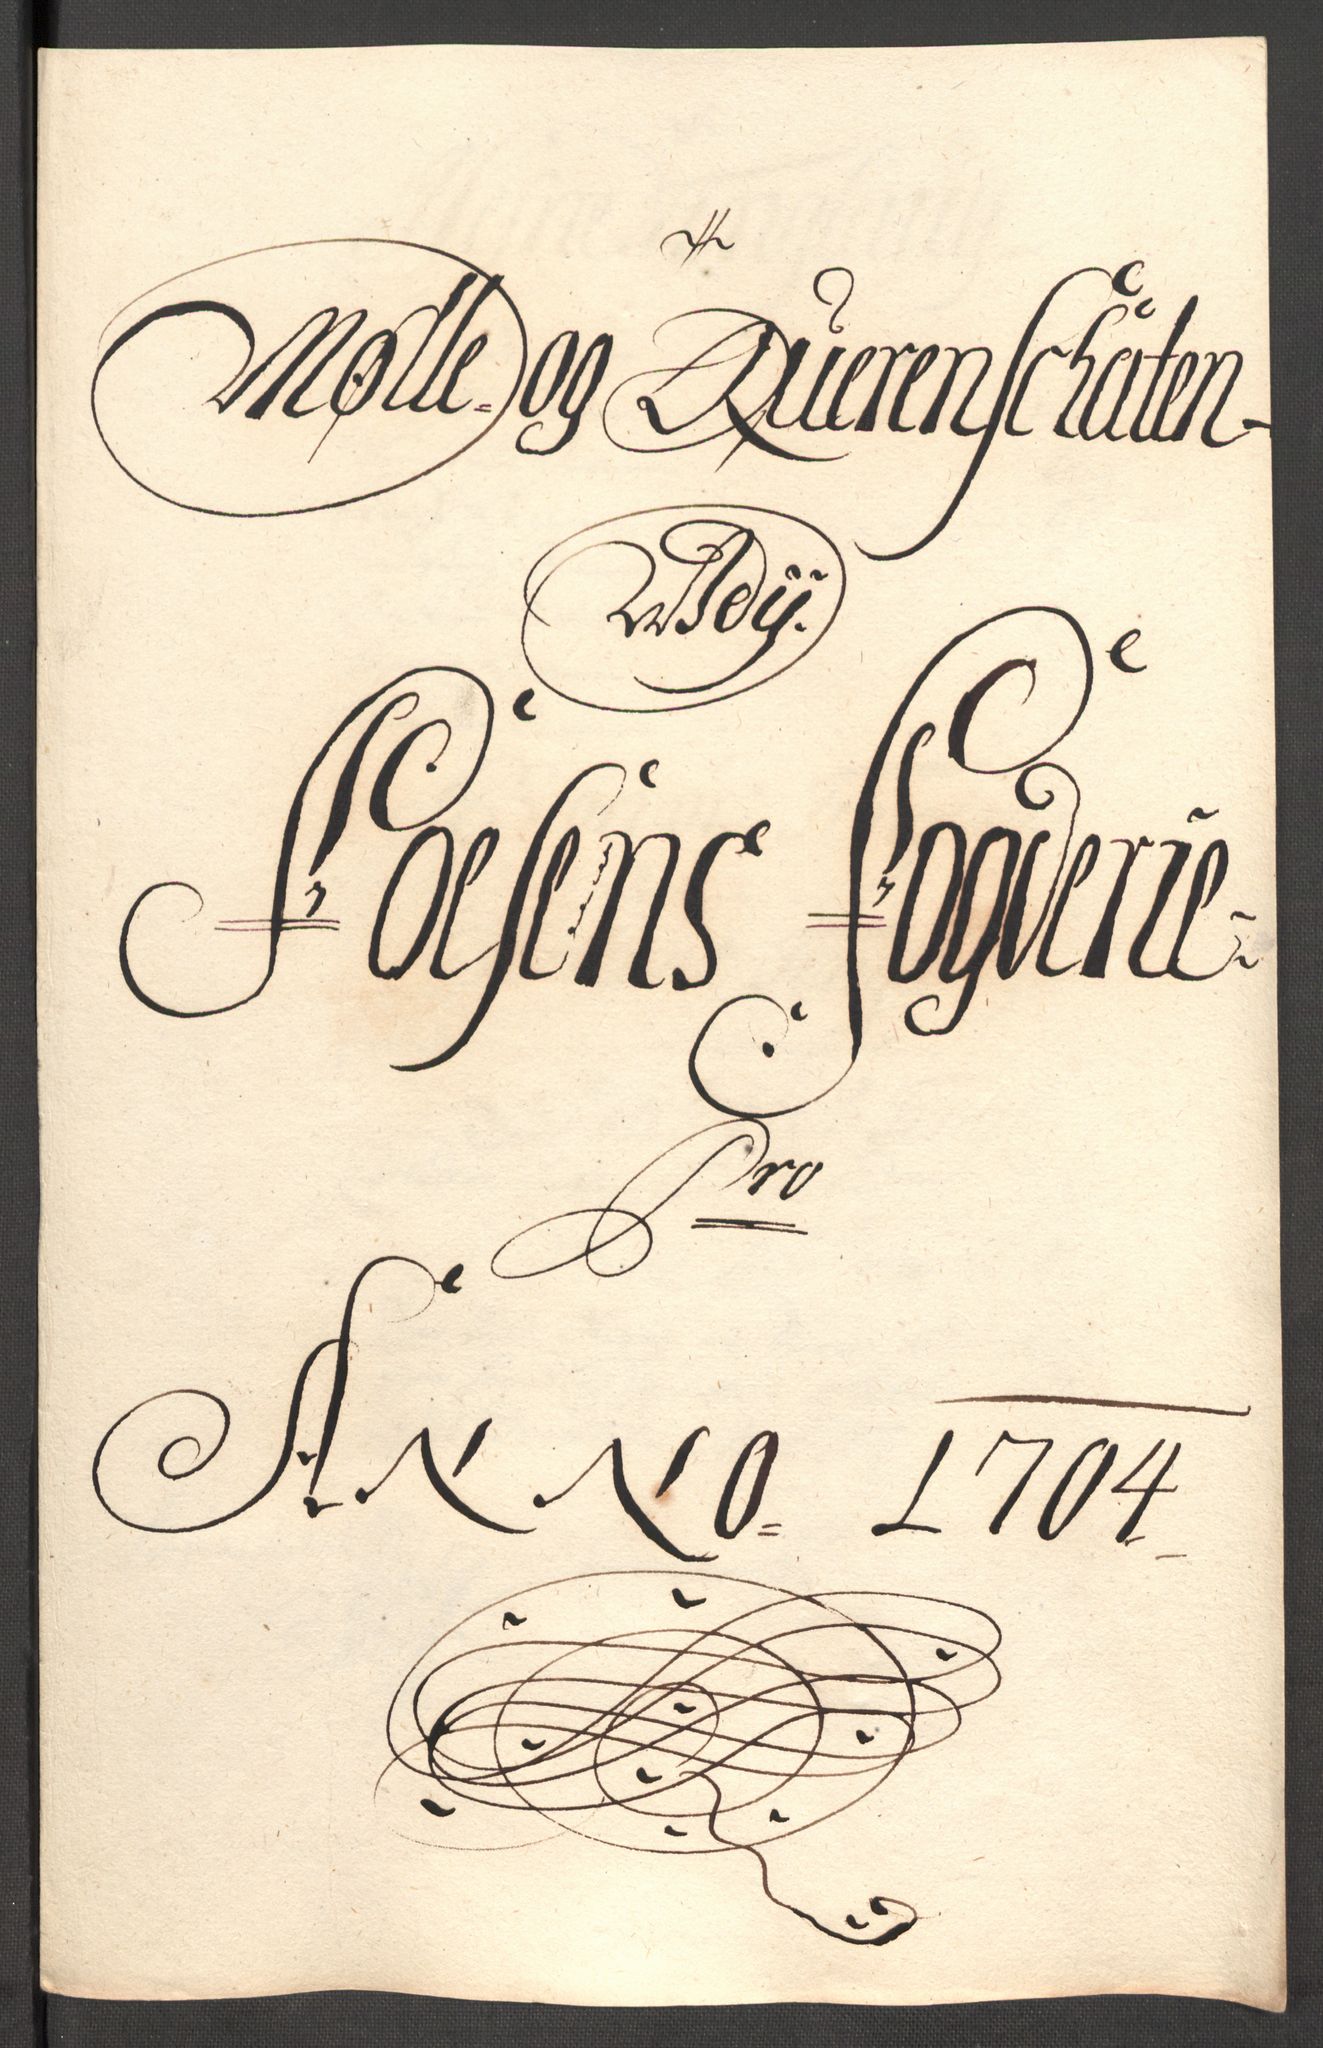 Mølle og Querenschaten
Udj
Foesens Fogderie
Pro
ANNO 1704